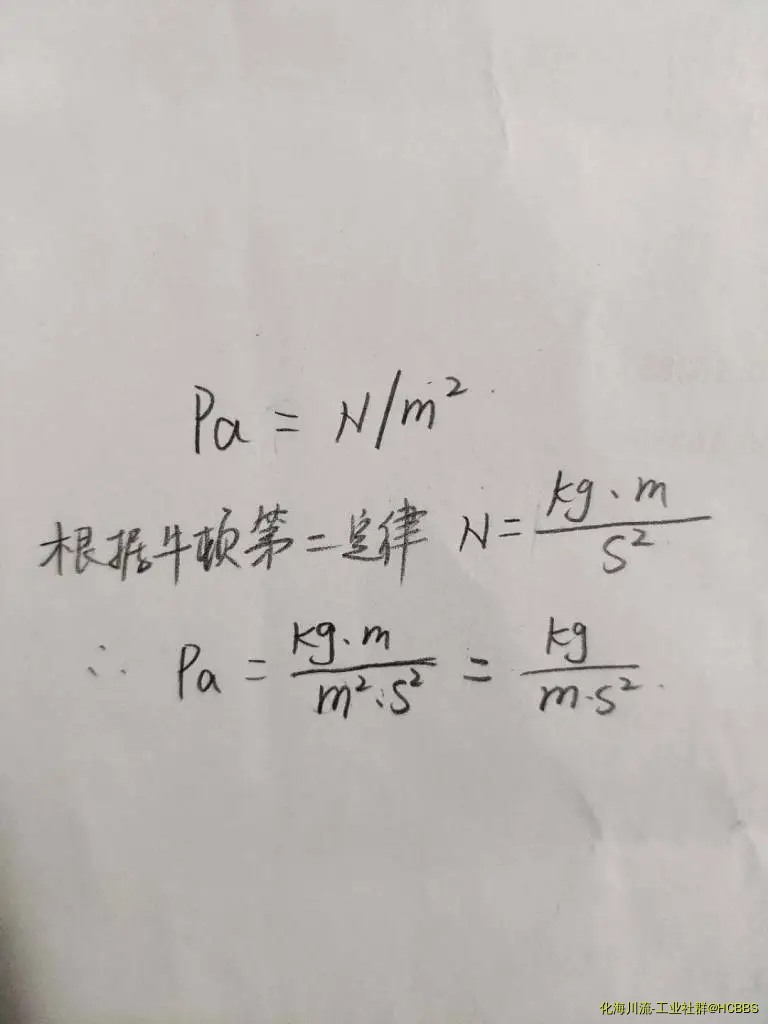 Pa = N/m²
根据牛顿第二定律 N = kg·m / s²
∴ Pa = kg·m / m²·s² = kg / m·s²
化海川流-工业社群@HCBBS